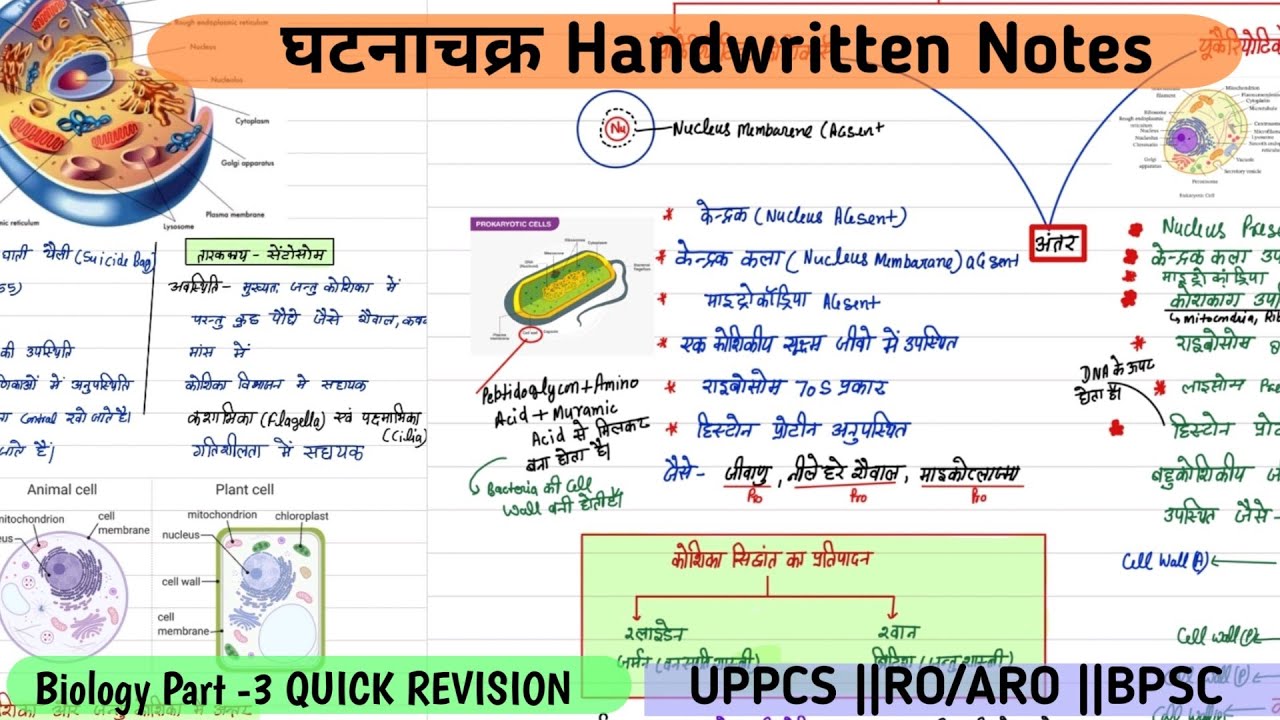 घटनाचक्र Handwritten Notes
Rough endoplasmic reticulum
Nucleus
Nucleolus
Cytoplasm
Golgi apparatus
Plasma membrane
Lysosome
mic reticulum
घाती थैली (Suicide Bag)
की उपस्थिति
में अनुपस्थिति
control रखे जाते है।
जाते हैं।
तारककाय - सेंट्रोसोम
अवस्थिति - मुख्यतः जन्तु कोशिका में
परन्तु कुछ पौधे जैसे शैवाल, कवक
मांस में
कोशिका विभाजन में सहायक
कशाभिका (Flagella) एवं पक्ष्माभिका
(Cilia)
गतिशीलता में सहायक
Animal cell
mitochondrion
cell membrane
Plant cell
mitochondrion
chloroplast
nucleus
cell wall
cell membrane
Nu
Nucleus Membarene (Absent
PROKARYOTIC CELLS
* केन्द्रक (Nucleus Absent)
* केन्द्रक कला (Nucleus Membarane) absent
* माइट्रोकॉंड्रिया Absent
* एक कोशिकीय सूक्ष्म जीवो में उपस्थित
* राइबोसोम 70S प्रकार
* हिस्टोन प्रोटीन अनुपस्थित
जैसे - जीवाणु, नीले हरे शैवाल, माइकोप्लाज्मा
Pro Pro Pro
Peptidoglycon + Amino
Acid + Muramic
Acid से मिलकर
बना होता है।
Bacteria की Cell
Wall बनी होती है।
अंतर
यूकैरियोटिक
Eukaryotic Cell
Nucleus Prese
केन्द्रक कला उप
माइट्रोकांड्रिया
कोशिकांग उप
mitocndria, Rib
राइबोसोम 8
DNA के ऊपर
होता है।
* लाइसोसोम Pre
हिस्टोन प्रो
बहुकोशिकीय जी
उपस्थित जैसे -
Cell Wall (A)
Cell Wall (P)
कोशिका सिद्धांत का प्रतिपादन
श्लाइडेन
श्वान
जर्मन (वनस्पति शास्त्री)
ब्रिटिश (जन्तु शास्त्री)
Biology Part -3 QUICK REVISION
UPPCS ||RO/ARO ||BPSC